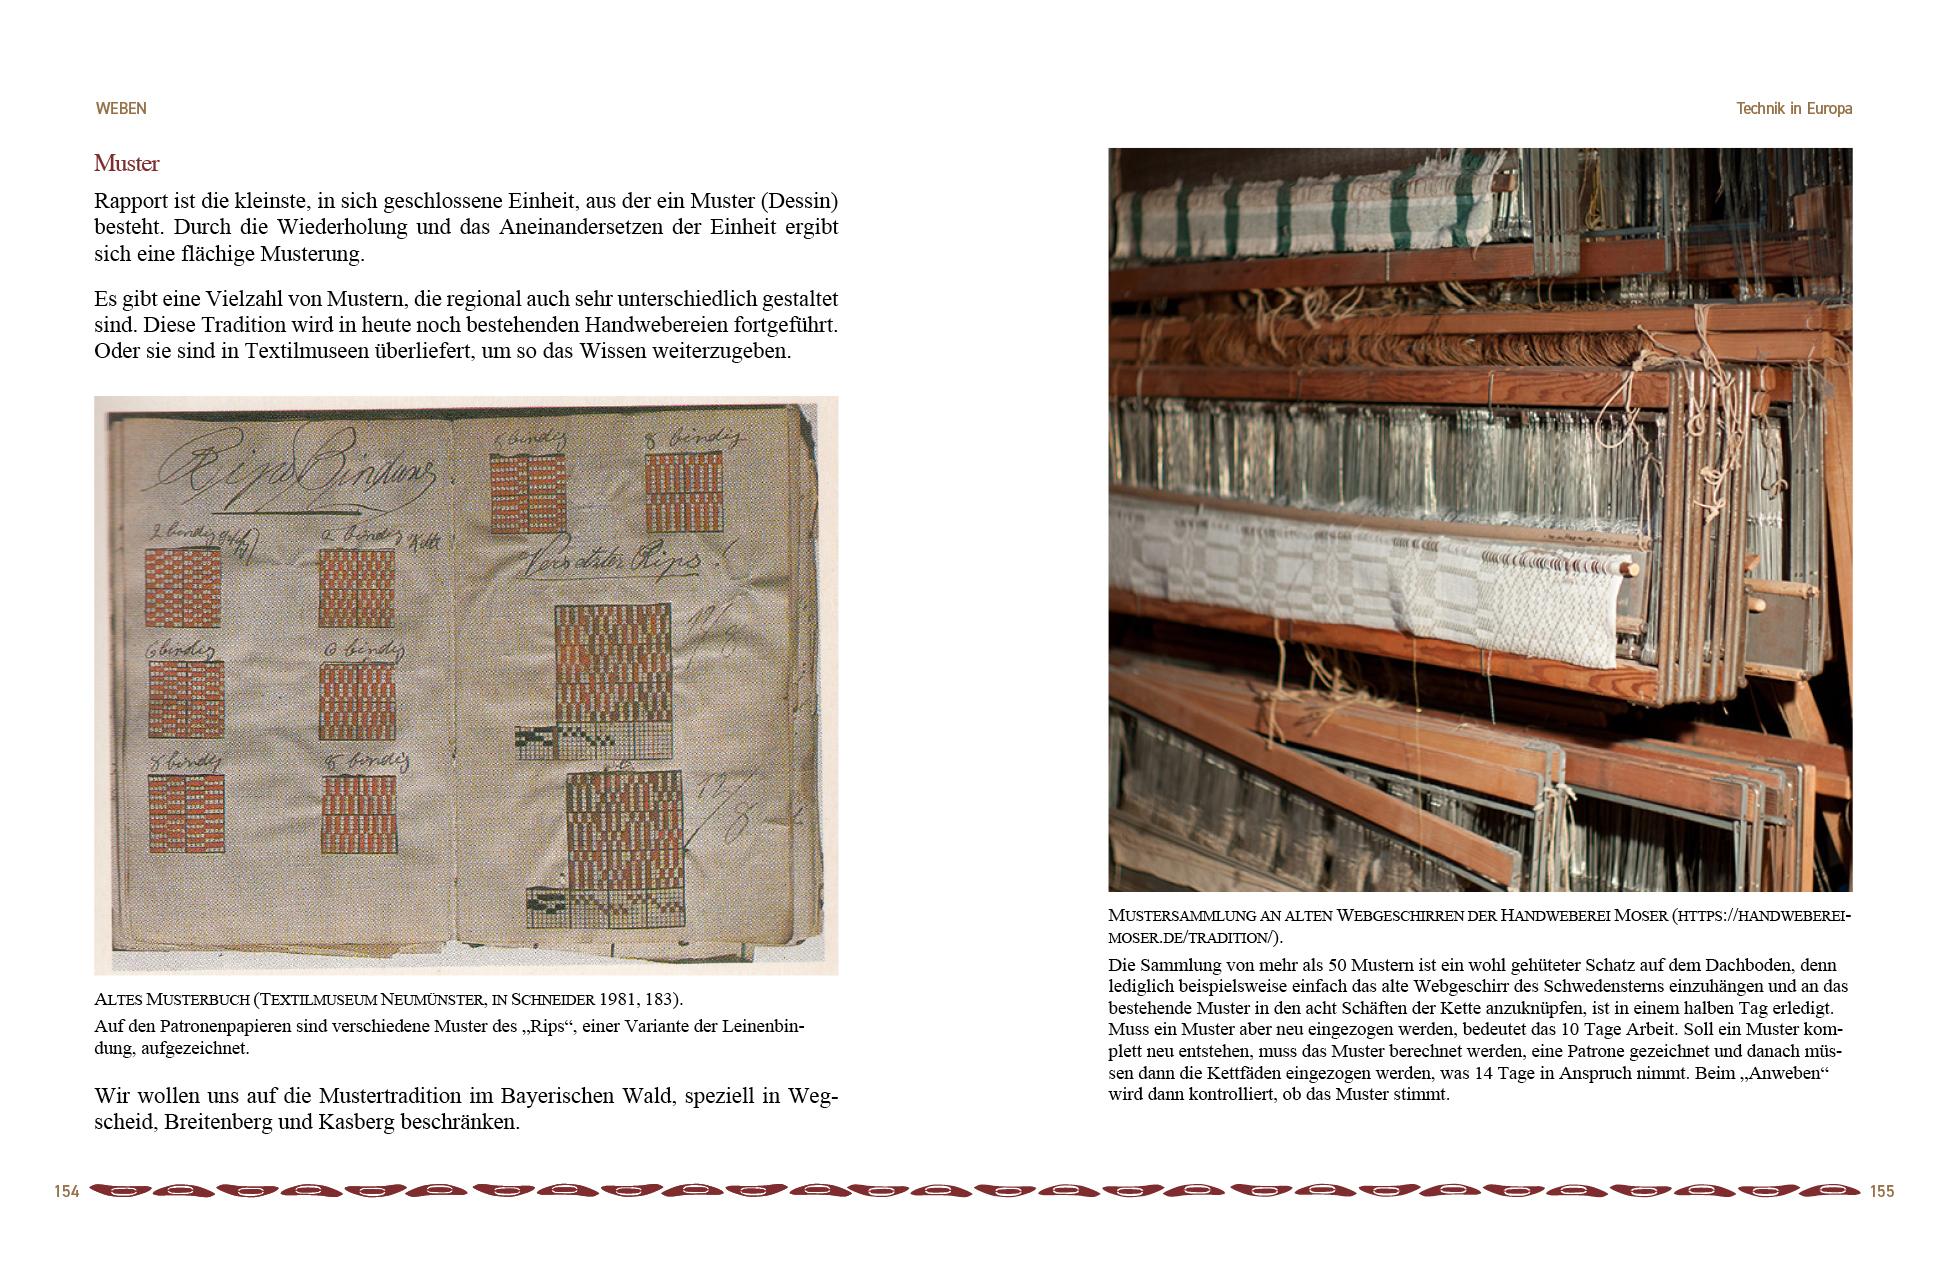 WEBEN
Muster
Rapport ist die kleinste, in sich geschlossene Einheit, aus der ein Muster (Dessin)
besteht. Durch die Wiederholung und das Aneinandersetzen der Einheit ergibt
sich eine flächige Musterung.
Es gibt eine Vielzahl von Mustern, die regional auch sehr unterschiedlich gestaltet
sind. Diese Tradition wird in heute noch bestehenden Handwebereien fortgeführt.
Oder sie sind in Textilmuseen überliefert, um so das Wissen weiterzugeben.
Rips Bindung.
2 bindig
2 bindig Kette
6 bindig
6 bindig
8 bindig
8 bindig
8 bindig
Versetzter Rips!
ALTES MUSTERBUCH (TEXTILMUSEUM NEUMÜNSTER, IN SCHNEIDER 1981, 183).
Auf den Patronenpapieren sind verschiedene Muster des „Rips“, einer Variante der Leinenbin-
dung, aufgezeichnet.
Wir wollen uns auf die Mustertradition im Bayerischen Wald, speziell in Weg-
scheid, Breitenberg und Kasberg beschränken.
154
Technik in Europa
MUSTERSAMMLUNG AN ALTEN WEBGESCHIRREN DER HANDWEBEREI MOSER (HTTPS://HANDWEBEREI-
MOSER.DE/TRADITION/).
Die Sammlung von mehr als 50 Mustern ist ein wohl gehüteter Schatz auf dem Dachboden, denn
lediglich beispielsweise einfach das alte Webgeschirr des Schwedensterns einzuhängen und an das
bestehende Muster in den acht Schäften der Kette anzuknüpfen, ist in einem halben Tag erledigt.
Muss ein Muster aber neu eingezogen werden, bedeutet das 10 Tage Arbeit. Soll ein Muster kom-
plett neu entstehen, muss das Muster berechnet werden, eine Patrone gezeichnet und danach müs-
sen dann die Kettfäden eingezogen werden, was 14 Tage in Anspruch nimmt. Beim „Anweben“
wird dann kontrolliert, ob das Muster stimmt.
155